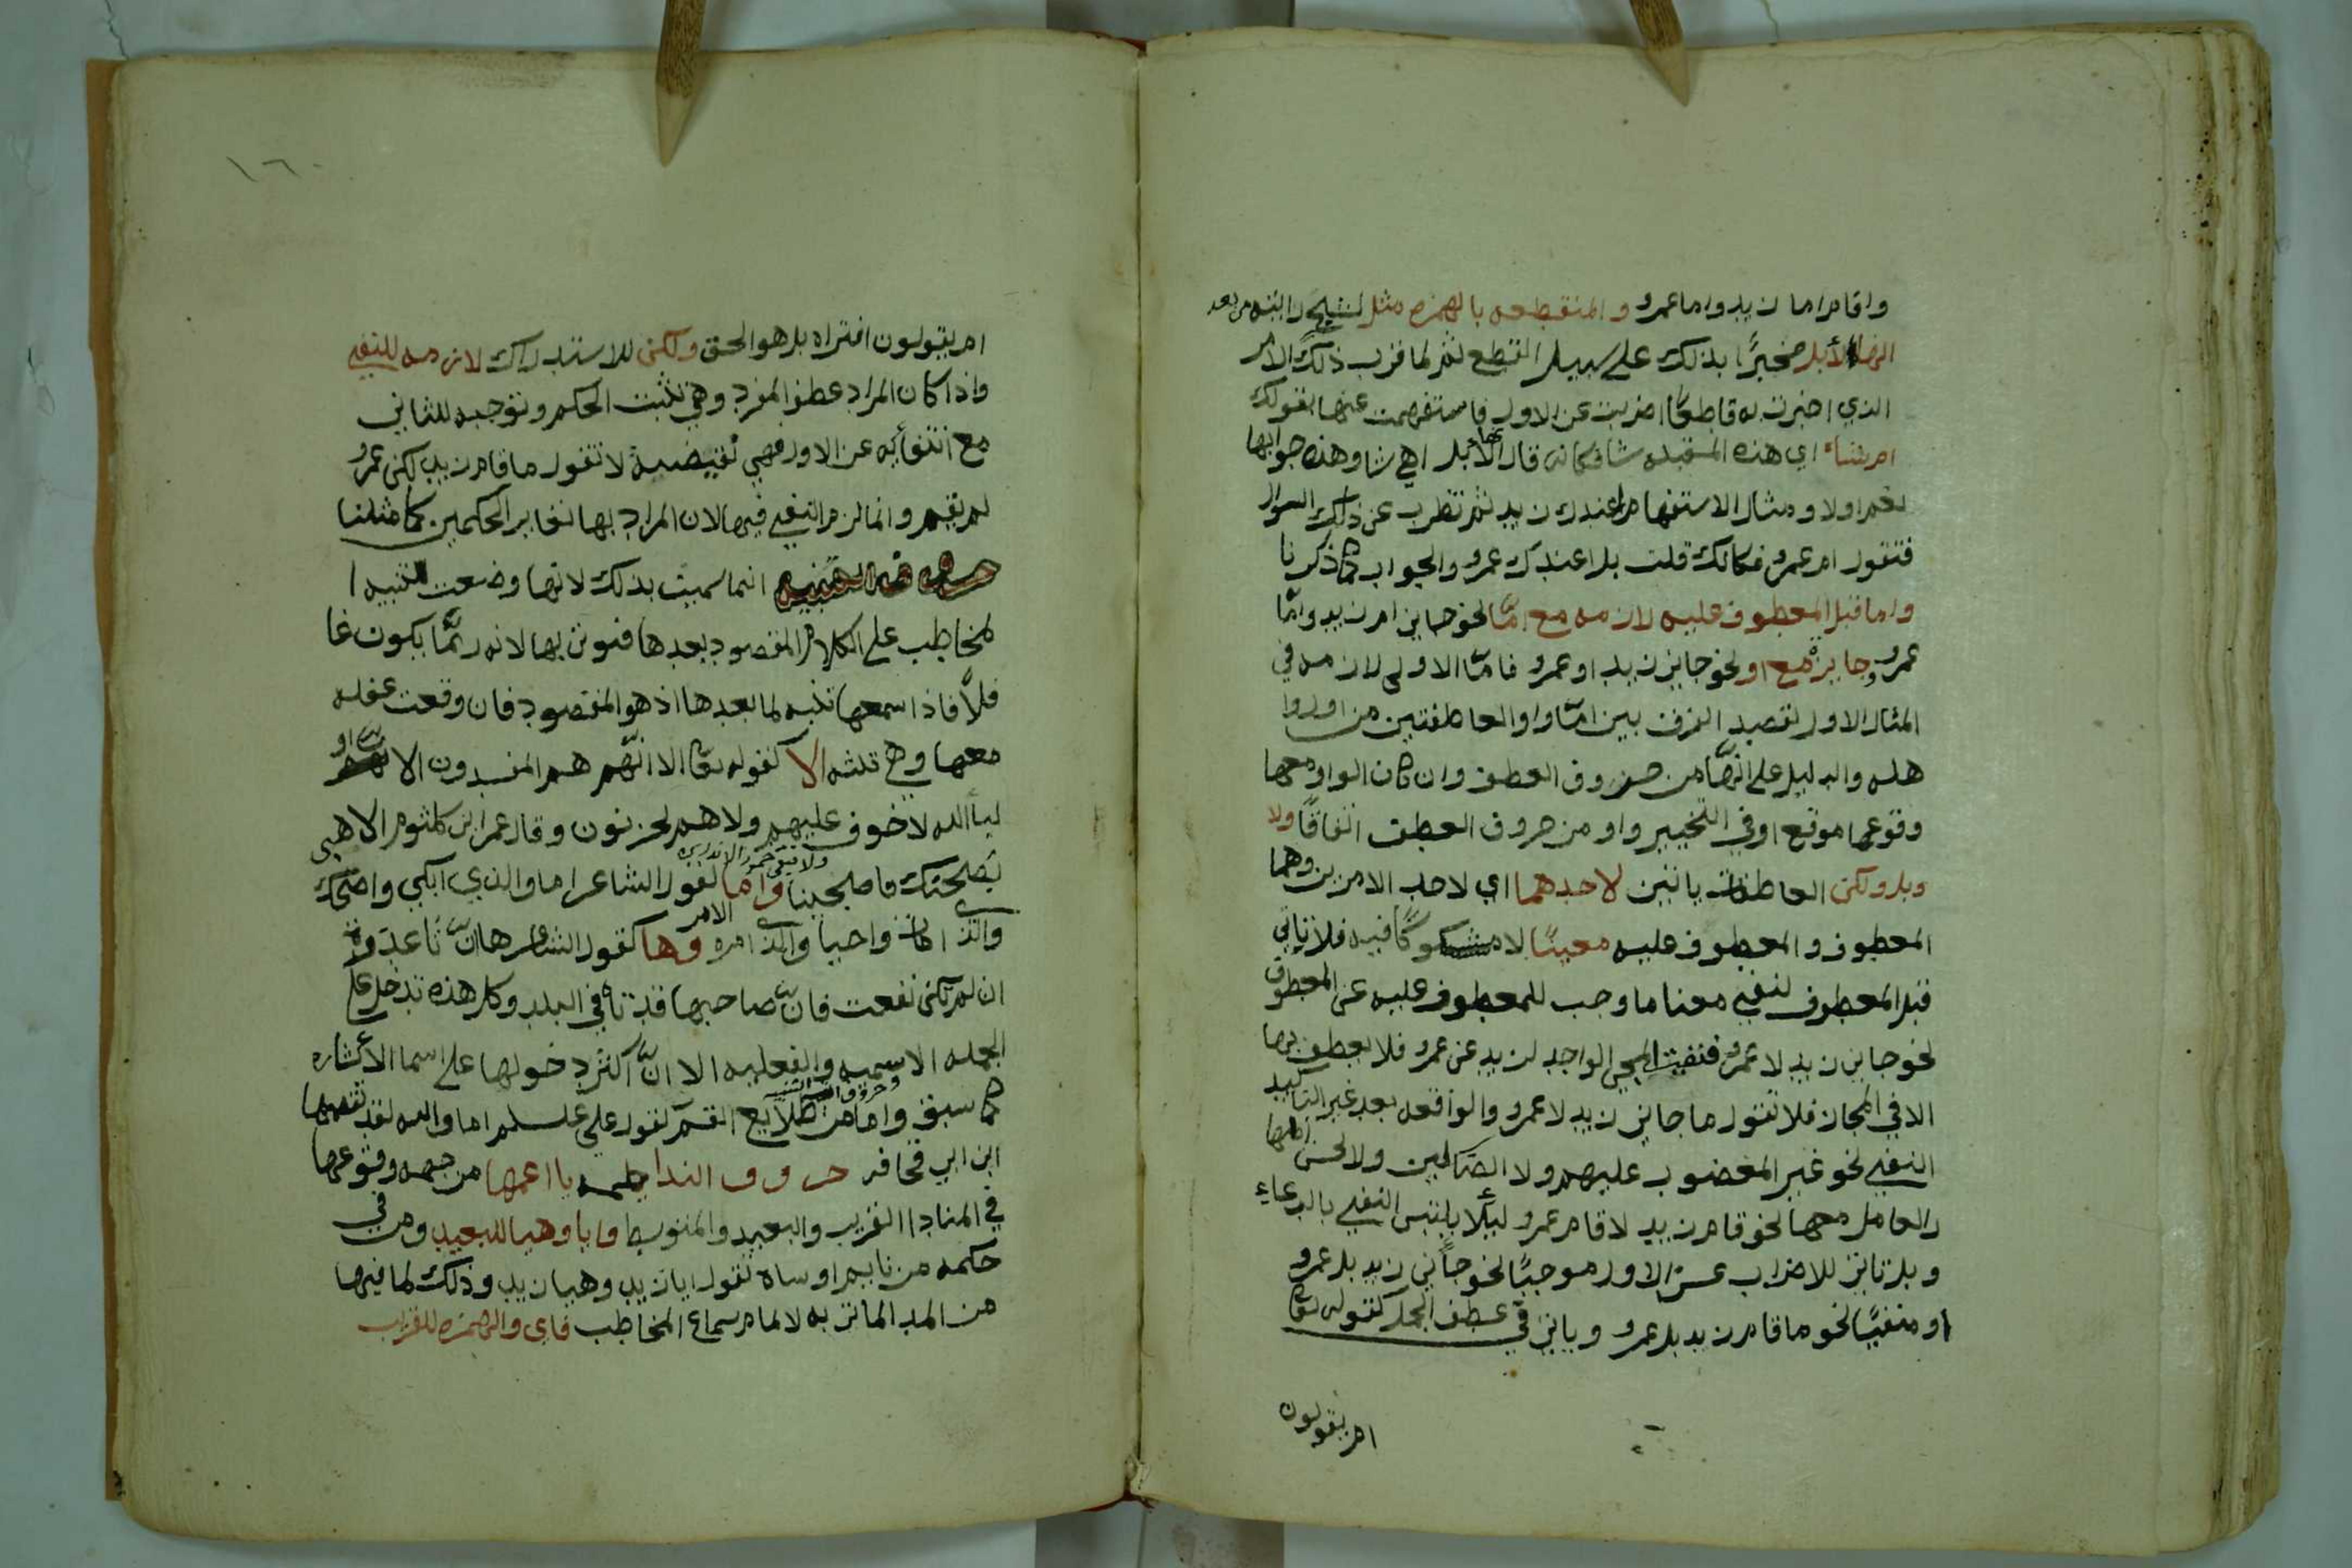 واقام اما زيد واما عمرو والمنقطعه بالهمزه مثل لشبح رايته من بعد
انها لأبل مخبرًا بذلك على سبيل القطع ثم لما قرب ذلك الامر
الذي اخبرت به قاطعًا اضربت عن الاول فاستفهمت عنها بقولك
ام شاء اي هذه المقبله شا فكانه قال انها لأبل اهي شا وهذه جوابها
نعم او لا ومثال الاستفهام اعندك زيد ثم تضرب عن ذلك السوال
فتقول ام عمرو فكانك قلت بل اعندك عمرو والجواب كما ذكرنا
واما قبل المعطوف عليه لازمه مع امّا نحو جاني اما زيد وامّا
عمرو وجايزة مع او نحو جاني زيد او عمرو فامّا الاولى لازمه في
المثال الاول لقصد الفرق بين امّا واو العاطفتين من اول
هله والدليل على انّها من حروف العطف وان كان الواو معها
وقوعها موقع او في التخيير واو من حروف العطف اتفاقًا ولا
وبل ولكن العاطفات ياتين لاحدهما اي لاحد الامرين وهما
المعطوف والمعطوف عليه معينًا لا مشكوكًا فيه فلا تاتي
قبل المعطوف لنفي معنا ما وجب للمعطوف عليه عن المعطوف
نحو جاني زيد لا عمرو فنفيت المجي الواجب لزيد عن عمرو فلا يعطف بها
الا في الايجاب فلا تقول ما جاني زيد لا عمرو والواقعه بعد غير التاكيد
النفي نحو غير المغضوب عليهم ولا الضالين ولا يحسن اظهار
العامل معها نحو قام زيد لا قام عمرو ليلًا يلتبس النفي بالدعاء
وبل تاتي للاضراب عن الاول موجبًا نحو جاني زيد بل عمرو
او منفيًا نحو ما قام زيد بل عمرو وياتي في عطف الجمل كقوله تعا
ام يقولون
١٦٠
ام يقولون افتراه بل هو الحق ولكن للاستدراك لازمه للنفي
واذا كان المراد عطف المفرد وهي تثبت الحكم وتوجبه للثاني
مع انتفايه عن الاول فهي نقيضة لا تقول ما قام زيد لكن عمرو
لم يقم وانما لزم النفي فيها لان المراد بها تغاير الحكمين كما مثلنا
حروف التنبيه انما سميت بذلك لانها وضعت لتنبيه ا
لمخاطب على الكلام المقصود بعدها فتوتى بها لانه ربّما يكون غا
فلًا فاذا سمعها تنبه لما بعدها اذ هو المقصود فان وقعت غفله
معها وهي ثلثه الا كقوله تعا الا انّهم هم المفسدون الا ان او
ليا الله لا خوف عليهم ولا هم يحزنون وقال عمر ابن كلثوم الا هبي
بصحنك فاصبحينا ولا تبقي خمور الاندرينا واما كقول الشاعر اما والذي ابكى واضحك
والذي امات واحيا والذي امره الامر وها كقول الشاعر ها انّ تا عذرة
ان لم تكن نفعت فانّ صاحبها قد تاه في البلد وكل هذه تدخل على
الجمله الاسميه والفعليه الا انّ اكثر دخولها على اسما الأشاره
كما سبق واما من طلايع القسم كقول علي علـ سلم اما والله لقد تقمصها
ابن ابي قحافه حروف الندا خمسه يا اعمها من جهه وقوعها
في المنادا القريب والبعيد والمتوسط وايا وهيا للبعيد ومن في
حكمه من نايم او ساه تقول ايا زيد وهيا زيد وذلك لما فيها
من المد الماتي به لالمام سماع المخاطب فاي والهمزه للقريب